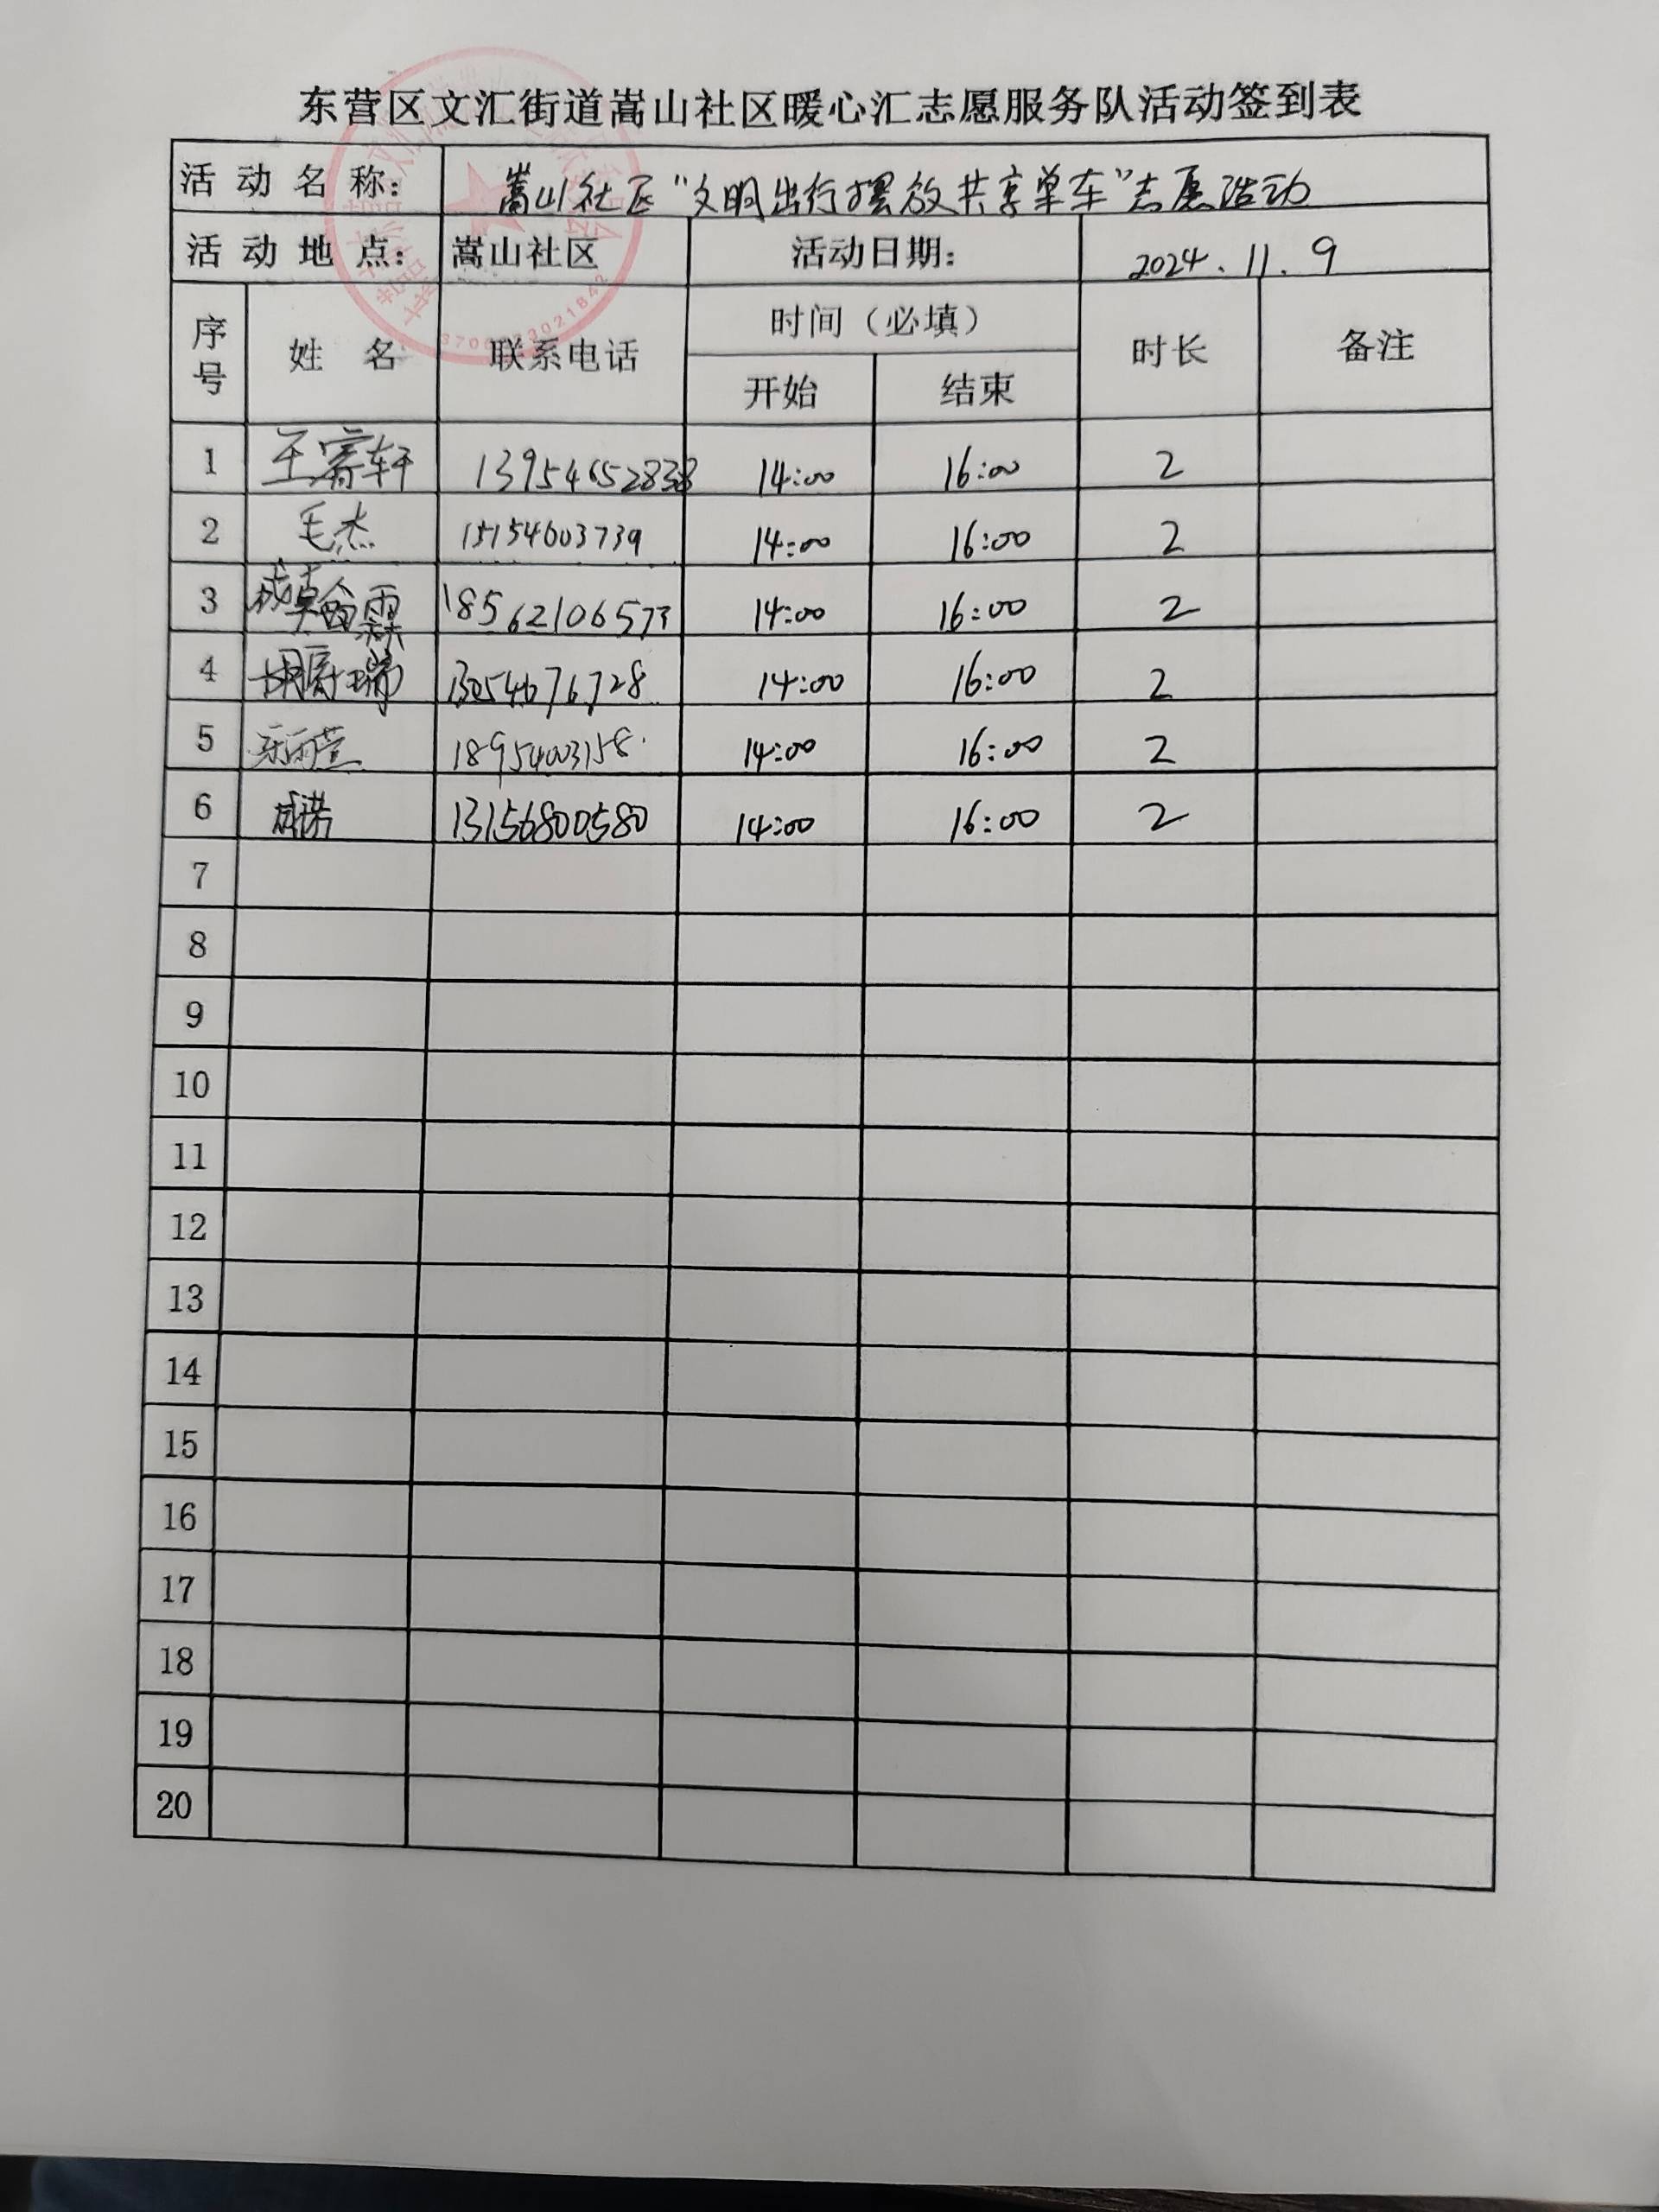 东营区文汇街道嵩山社区暖心汇志愿服务队活动签到表
活动名称： 嵩山社区“文明出行摆放共享单车”志愿活动
活动地点： 嵩山社区 活动日期： 2024.11.9
序号 姓名 联系电话 时间（必填） 时长 备注
开始 结束
1 王睿轩 13954652838 14:00 16:00 2
2 毛杰 15154603739 14:00 16:00 2
3 18562106573 14:00 16:00 2
4 14:00 16:00 2
5 18954003158 14:00 16:00 2
6 13156800580 14:00 16:00 2
7
8
9
10
11
12
13
14
15
16
17
18
19
20